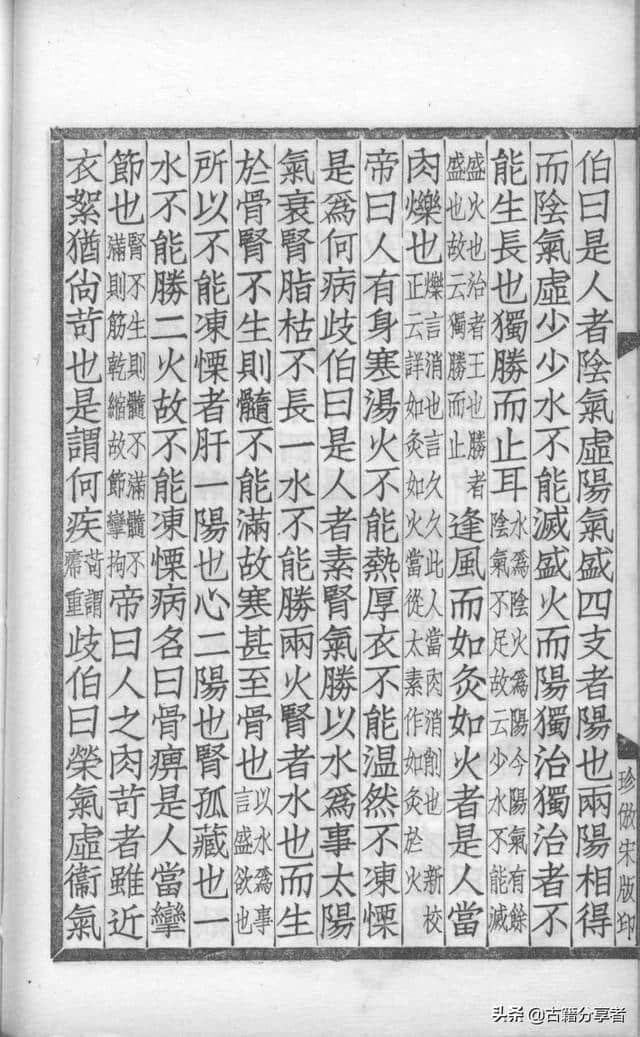 伯曰是人者陰氣虛陽氣盛四支者陽也兩陽相得
而陰氣虛少少水不能滅盛火而陽獨治獨治者不
能生長也獨勝而止耳水爲陰火爲陽今陽氣有餘陰氣不足故云少水不能滅
盛火也治者王也勝者盛也故云獨勝而止逢風而如灸如火者是人當
肉爍也爍言消也言久久此人當肉消削也新校正云詳如灸如火當從太素作如灸於火
帝曰人有身寒湯火不能熱厚衣不能温然不凍慄
是爲何病歧伯曰是人者素腎氣勝以水爲事太陽
氣衰腎脂枯不長一水不能勝兩火腎者水也而生
於骨腎不生則髓不能滿故寒甚至骨也以水爲事言盛欲也
所以不能凍慄者肝一陽也心二陽也腎孤藏也一
水不能勝二火故不能凍慄病名曰骨痹是人當攣
節也腎不生則髓不滿髓不滿則筋乾縮故節攣拘帝曰人之肉苛者雖近
衣絮猶尙苛也是謂何疾苛謂𤸷重歧伯曰榮氣虛衞氣
珍倣宋版印
头条@古籍分享者